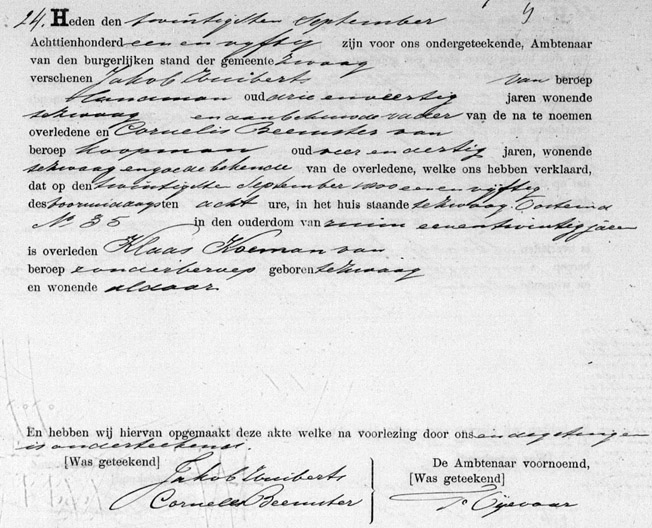 24. Heden den twintigsten September
Achttienhonderd een en vyftig zijn voor ons ondergeteekende, Ambtenaar
van den burgerlijken stand der gemeente Zwaag
verschenen Jakob Zwiberts van beroep
Landman oud drie en veertig jaren wonende
te Zwaag en aanbehuwde vader van de na te noemen
overledene en Cornelis Beemster van
beroep Koopman oud vier en dertig jaren, wonende
te Zwaag en goede bekende van de overledene, welke ons hebben verklaard,
dat op den twintigste September 1800 een en vyftig
des voormiddags ten acht ure, in het huis staande te Zwaag Oosteind
No 35 in den ouderdom van ruim een en twintig jaren
is overleden Klaas Koeman van
beroep zonder beroep geboren te Zwaag
en wonende aldaar
En hebben wij hiervan opgemaakt deze akte welke na voorlezing door ons en de getuigen
is onderteekend
[Was geteekend] De Ambtenaar voornoemd,
Jakob Zwiberts [Was geteekend]
Cornelis Beemster